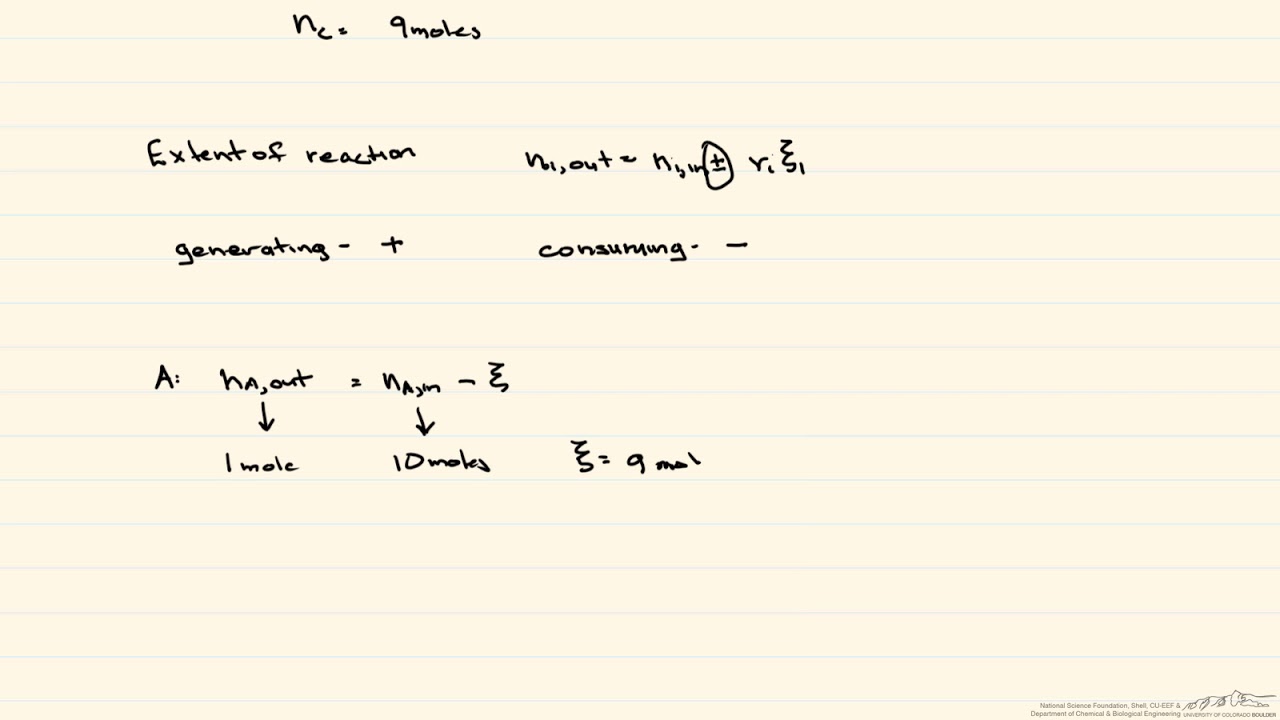 nc = 9 moles
Extent of reaction ni,out = ni,in ± riξ1
generating - + consuming - -
A: nA,out = nA,in - ξ
↓ ↓
1 mole 10 moles ξ = 9 mol
National Science Foundation, Shell, CU-EEF &
Department of Chemical & Biological Engineering UNIVERSITY OF COLORADO BOULDER